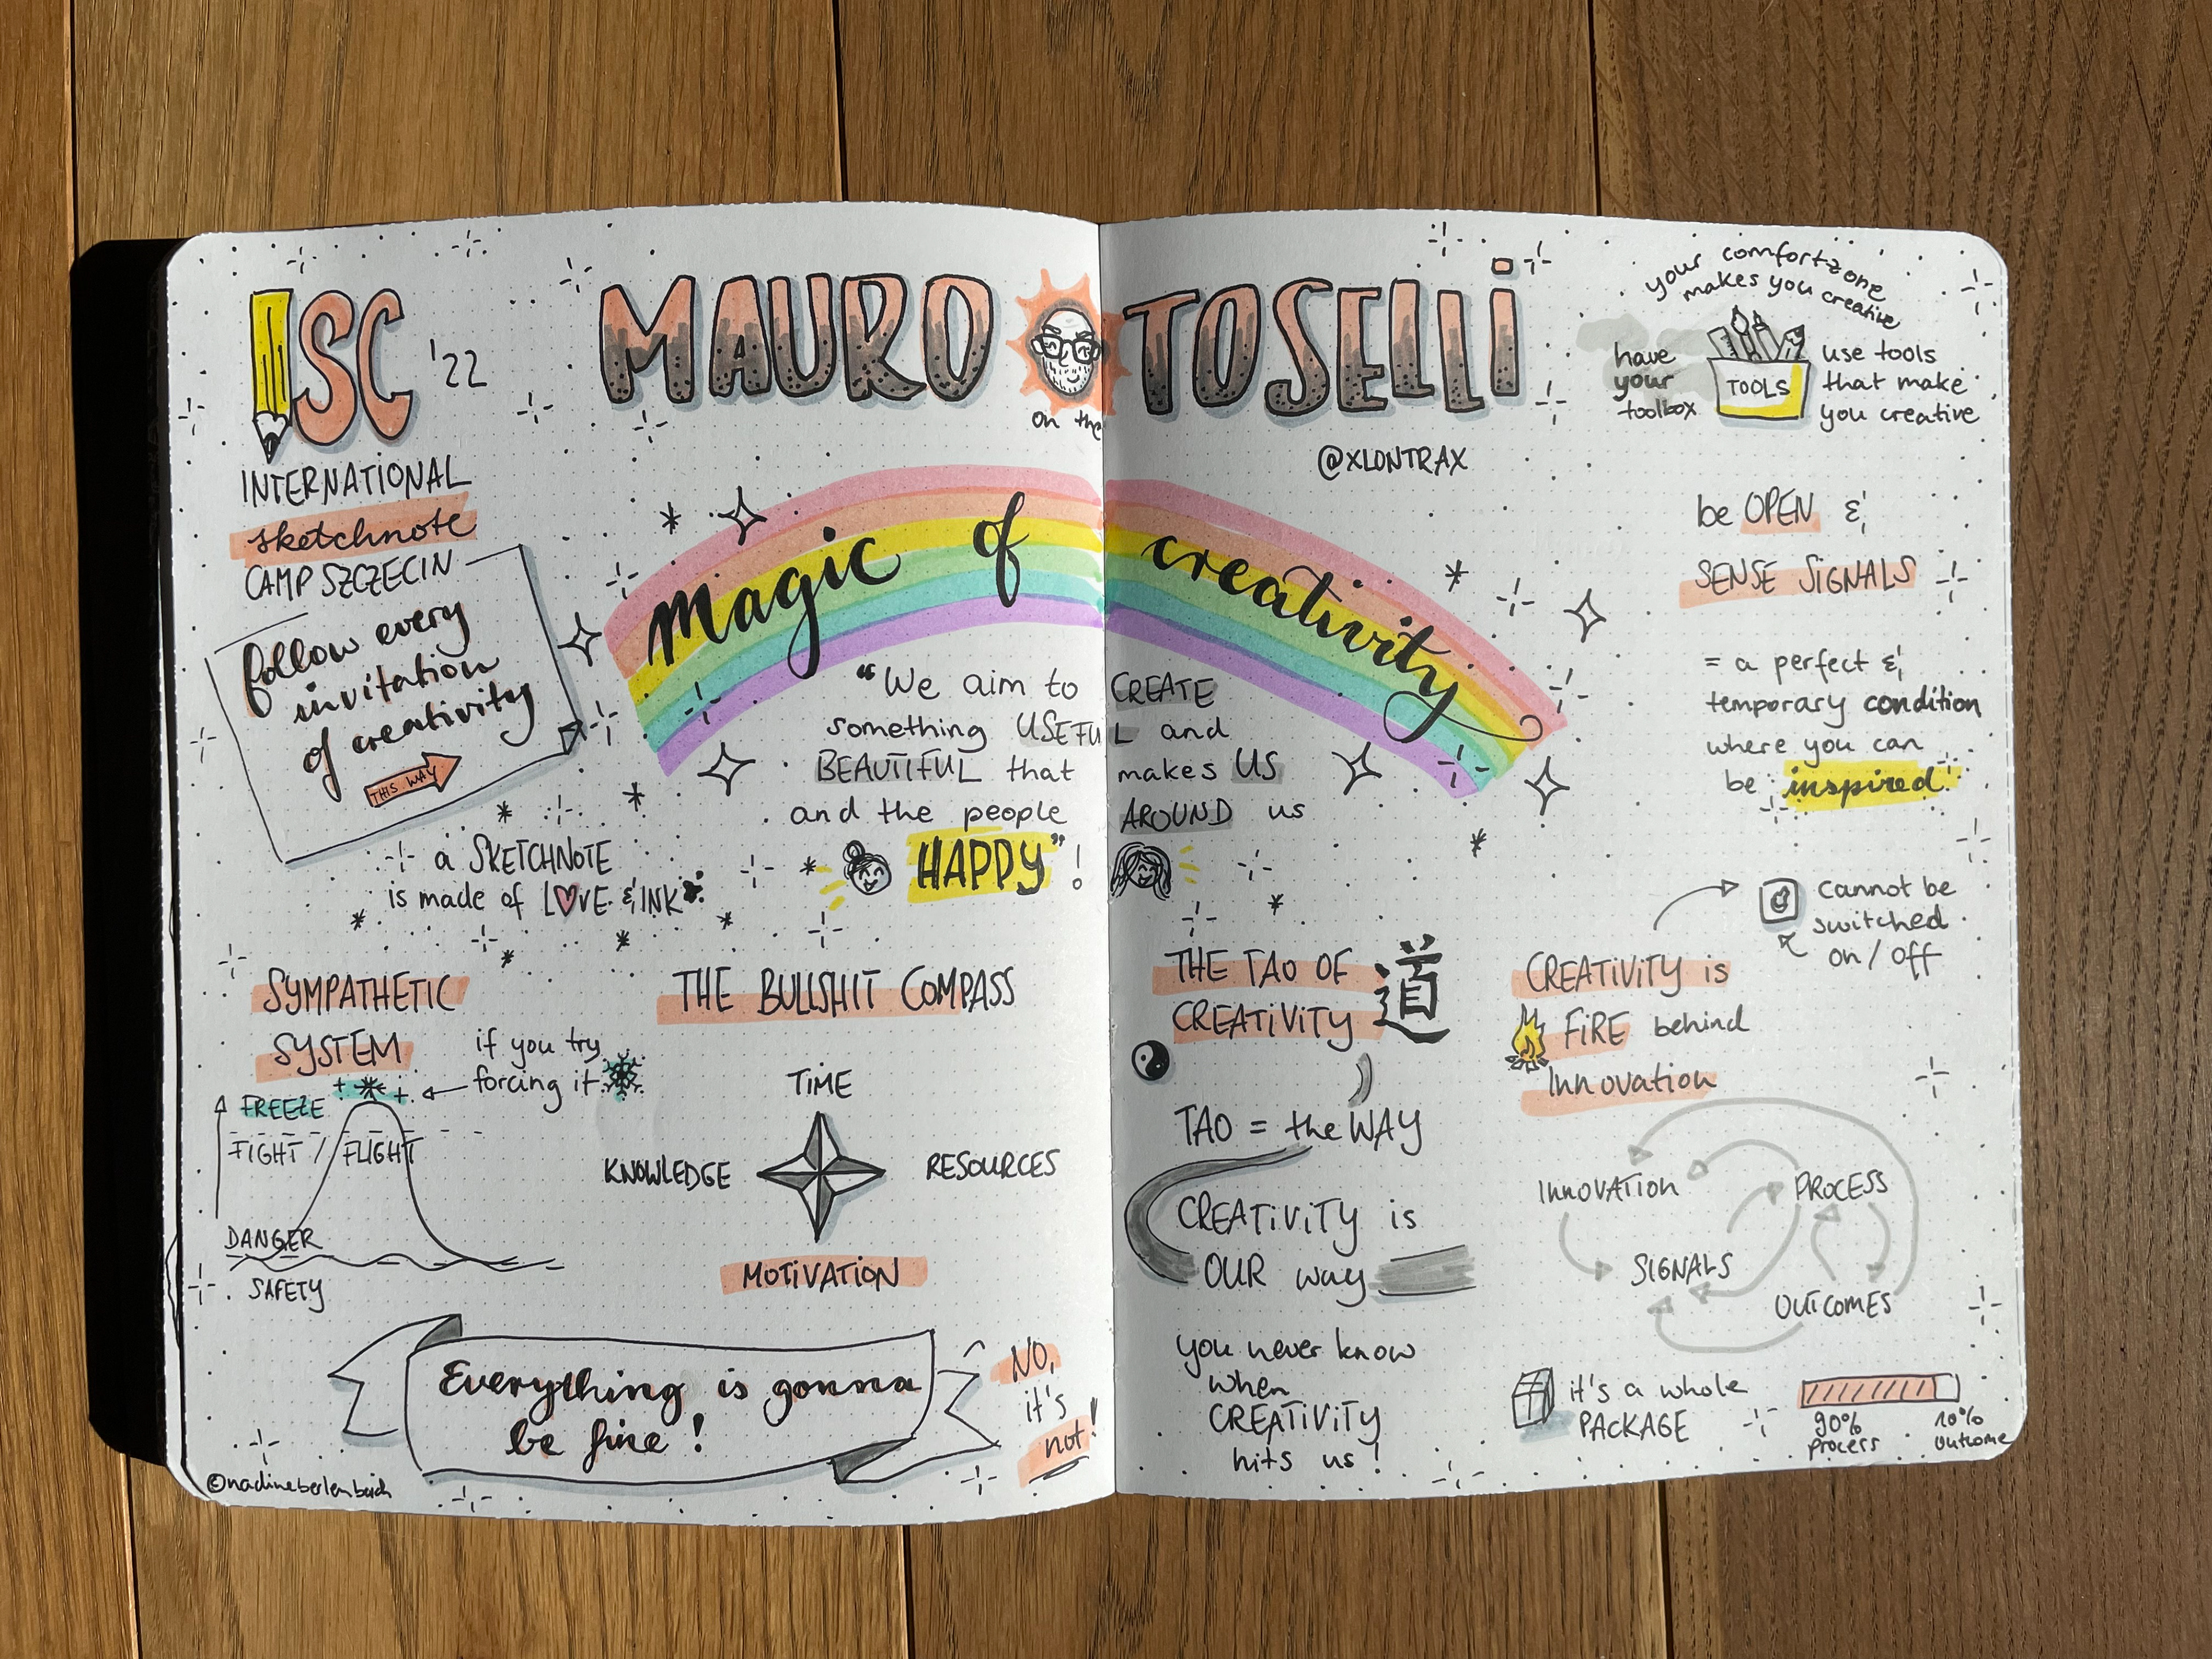 ISC '22
INTERNATIONAL
sketchnote
CAMP SZCZECIN
follow every
invitation
of creativity
THIS WAY
MAURO TOSELLI
on the
@XLONTRAX
magic of creativity
"We aim to CREATE
something USEFUL and
BEAUTIFUL that makes US
and the people AROUND us
HAPPY"!
a SKETCHNOTE
is made of LOVE & INK
your comfortzone
makes you creative
have
your
toolbox
TOOLS
use tools
that make
you creative
be OPEN &
SENSE SIGNALS
= a perfect &
temporary condition
where you can
be inspired
SYMPATHETIC
SYSTEM
if you try
forcing it
FREEZE
FIGHT / FLIGHT
DANGER
SAFETY
THE BULLSHIT COMPASS
TIME
KNOWLEDGE
RESOURCES
MOTIVATION
Everything is gonna
be fine!
NO,
it's
not!
©nadineberlenbach
THE TAO OF
CREATIVITY
道
TAO = the WAY
CREATIVITY is
OUR way
you never know
when
CREATIVITY
hits us!
CREATIVITY is
FIRE behind
Innovation
cannot be
switched
on / off
INNOVATION
PROCESS
SIGNALS
OUTCOMES
it's a whole
PACKAGE
90%
process
10%
outcome